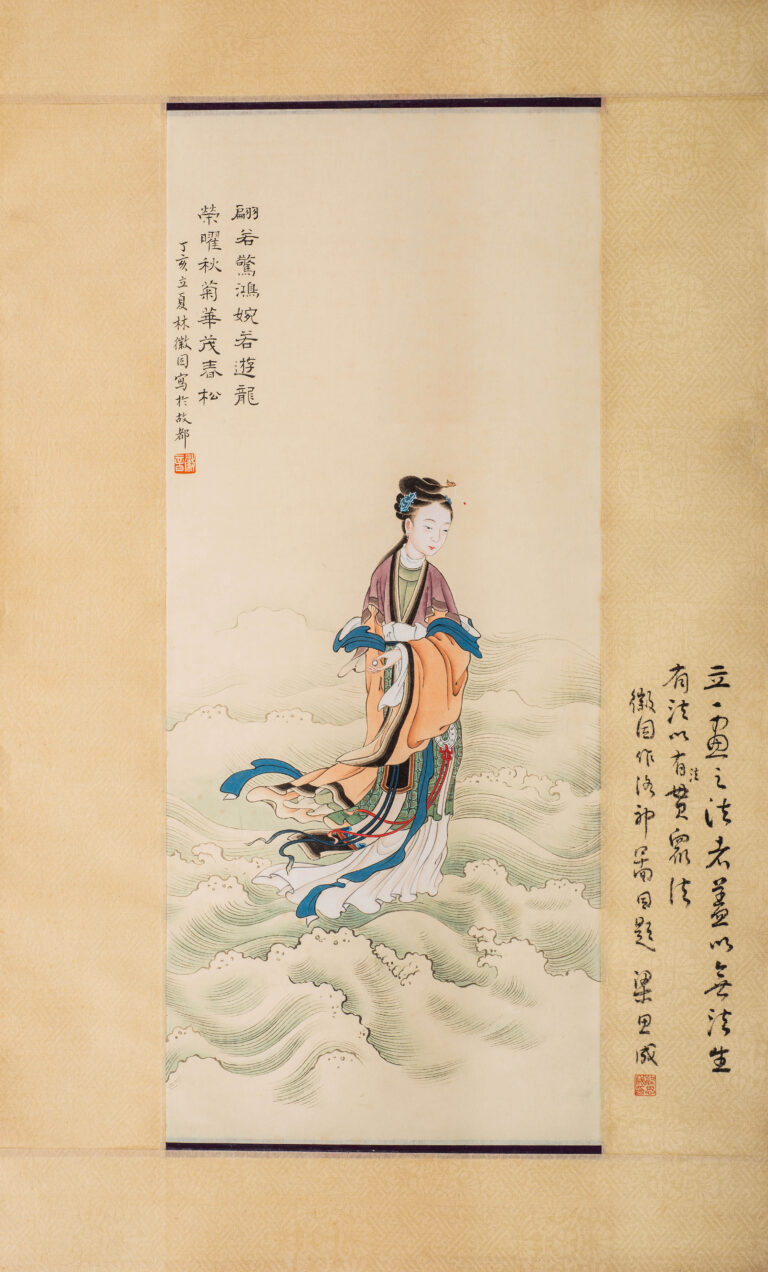 翩若驚鴻婉若遊龍
榮曜秋菊華茂春松
丁亥立夏林徽因寫於故都
立一畫之法者蓋以無法生
有法以有法貫衆法
徽因作洛神圖因題 梁思成